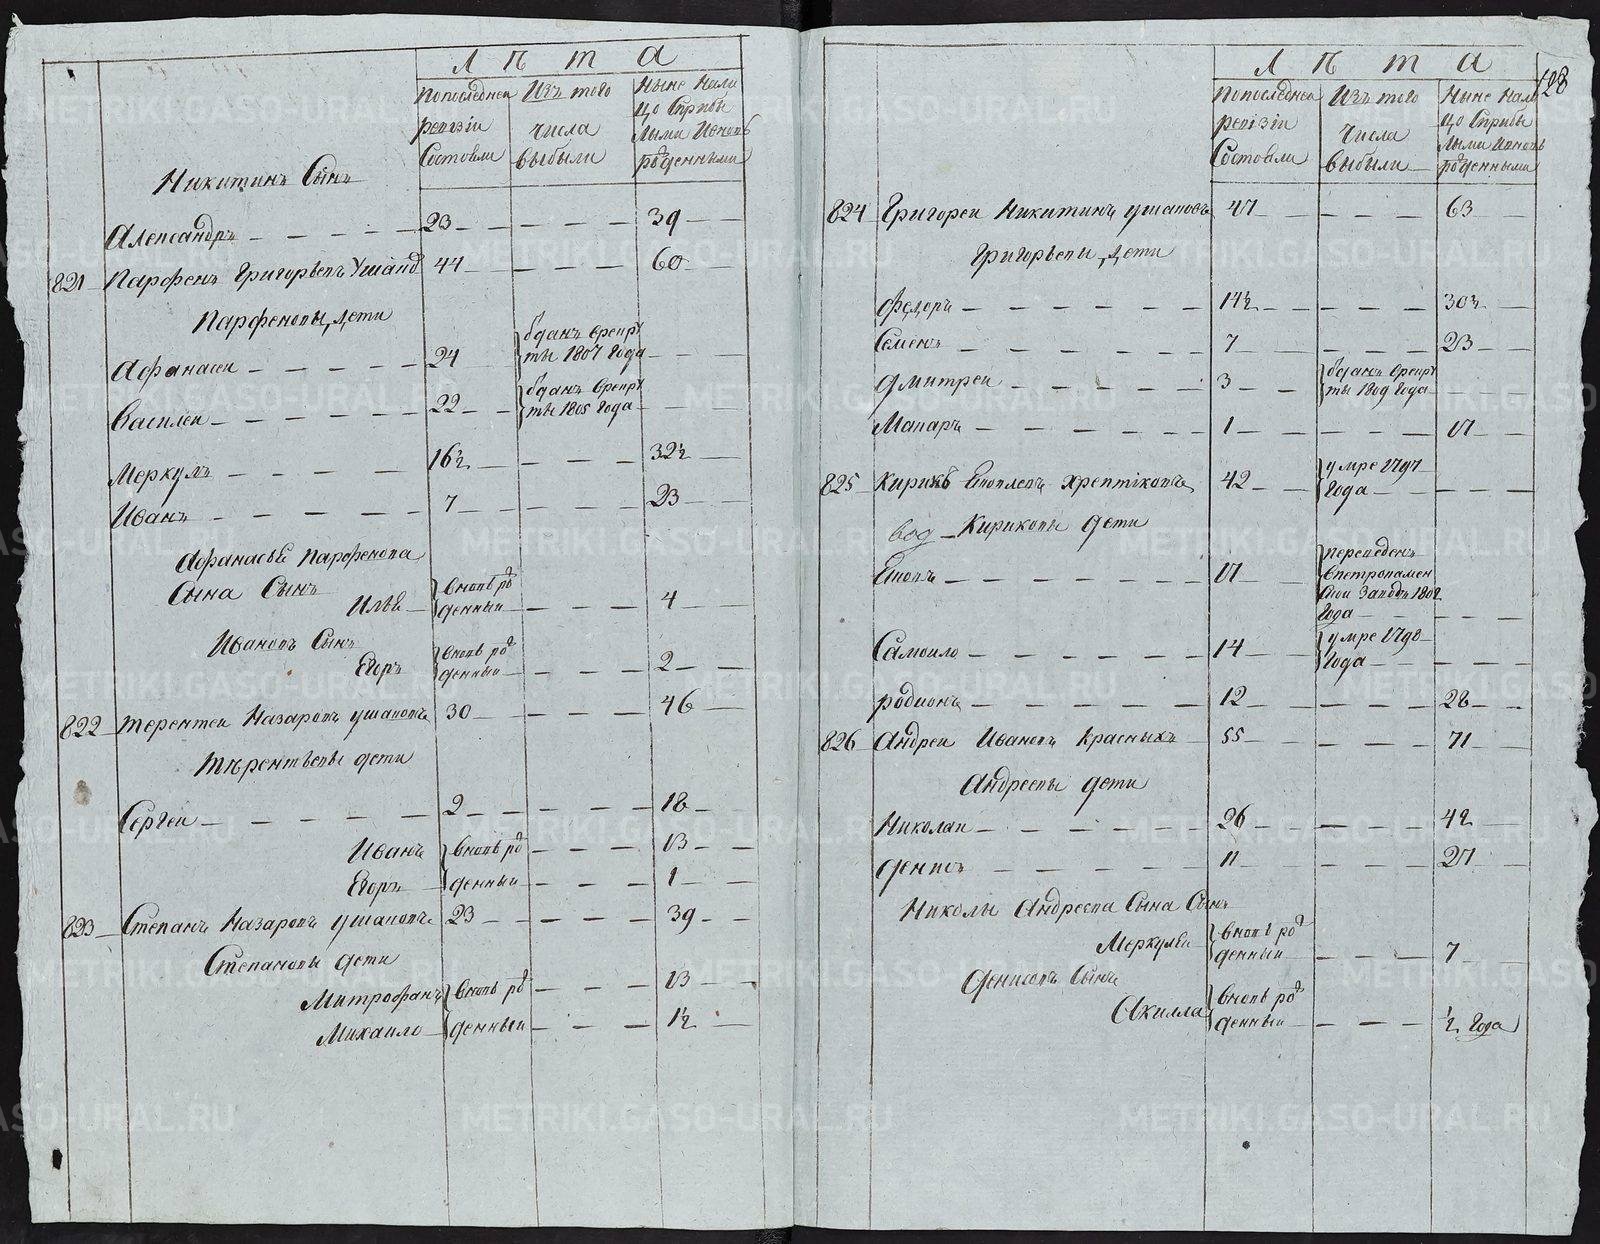 Л ѣ т а
Попоследней
ревізіи
Состояли
Изъ того
числа
выбыли
Ныне Нали
цо Сприбы
лыми Ивновь
рожденными
Никитинъ Сынъ
Александръ 23 39
821 Парфенъ Григорьевъ Ушако 44 60
Парфеновы дети
Афанасеи 24 отданъ Врекру
ты 1807 Года
Василеи 22 отданъ Врекру
ты 1805 Года
Меркулъ 16½ 32½
Иванъ 7 23
Афанасья Парфенова
Сына Сынъ
Илья Вновь рож
денныи 4
Ивановъ Сынъ
Егоръ Вновь рож
денныи 2
822 Терентеи Назаровъ ушаковъ 30 46
Терентьевы дети
Сергеи 2 18
Иванъ Вновь рож 13
Егоръ денныи 1
823 Степанъ Назаровъ ушаковъ 23 39
Степановы дети
Митрофанъ Вновь рож 13
Михаило денныи 1½
128
Л ѣ т а
Попоследней
ревізіи
Состояли
Изъ того
числа
выбыли
Ныне Нали
цо Сприбы
лыми Ивновь
рожденными
824 Григореи Никитинъ ушаковъ 47 63
Григорьевы дети
Федоръ 14½ 30½
Семенъ 7 23
Дмитреи 3 отданъ Врекру
ты 1809 Года
Макаръ 1 17
825 Кирикъ Хрептіковъ 42 умре 1797
Года
Кириковы дети
17 переведенъ
Впетропавлов
Скои Заводъ 1802
Года
Самоило 14 умре 1798
Года
родионъ 12 28
826 Андреи Ивановъ Красныхъ 55 71
Андреевы дети
Николаи 26 42
Денисъ 11 27
Николы Андреева Сына Сынъ
Меркулеи Вновь рож
денныи 7
Денисовъ Сынъ
Акилла Вновь рож
денныи ½ Года
METRIKI.GASO-URAL.RU